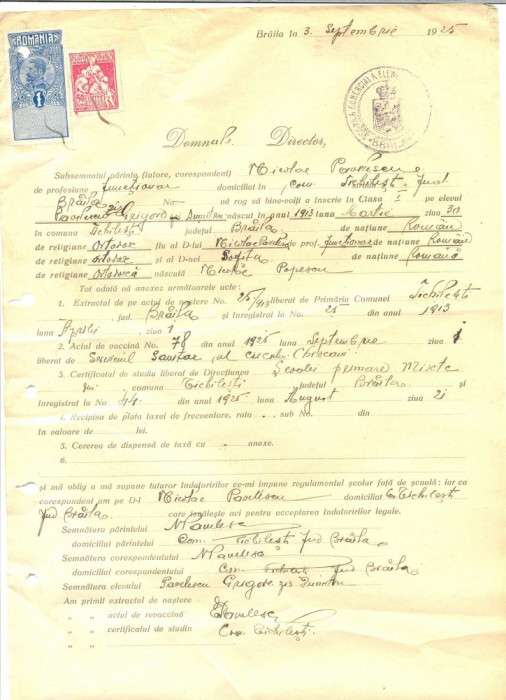 Brăila în 3. Septembrie 1925
ROMANIA
1
ȘCOALA COMERCIALĂ ELEM.
BRĂILA
Domnule Director,
Subsemnatul părinte (tutore, corespondent) Nicolae Pavelescu
de profesiune funcționar domiciliat în com. Tichilești Jud
Brăila No. vă rog să bine-voiți a înscrie în Clasa I pe elevul
Pavelescu Grigore zis Dumitru născut în anul 1913 luna Martie ziua 30
în comuna Tichilești județul Brăila de națiune Român
de religiune ortodox fiu al D-lui Nicolae Pavelescu de prof. funcționar de națiune Român
de religiune ortodox și al D-nei Sofița de națiune Română
de religiune ortodoxă născută Nicolae Popescu
Tot odată vă anexez următoarele acte:
1. Extractul de pe actul de naștere No. 25/913 liberat de Primăria Comunei Tichilești
jud. Brăila și înregistrat la No. 25 din anul 1913
luna Aprilie ziua 1
2. Actul de vaccină No. 78 din anul 1925 luna Septembrie ziua 1
liberat de Serviciul Sanitar al circ.
3. Certificatul de studiu liberat de Direcțiunea Școalei primare Mixte
comuna Tichilești județul Brăila și
înregistrat la No. 44 din anul 1925 luna August ziua 21
4. Recipisa de plata taxei de frecventare, rata sub No. din
în valoare de lei.
5. Cererea de dispensă de taxă cu anexe.
6.
și mă oblig a mă supune tuturor îndatoririlor ce-mi impune regulamentul școlar față de școală; iar ca
corespondent am pe D-l Nicolae Pavelescu domiciliat Tichilești
Jud Brăila care iscălește aci pentru acceptarea îndatoririlor legale.
Semnătura părintelui N Pavelescu
domiciliul părintelui Com. Tichilești Jud Brăila
Semnătura corespondentului N Pavelescu
domiciliul corespondentului Com Tichilești Jud Brăila
Semnătura elevului Pavelescu Grigore zis Dumitru
Am primit extractul de naștere
„ „ actul de revaccină Pavelescu
„ „ certificatul de studiu Com. Tichilești.
„ „